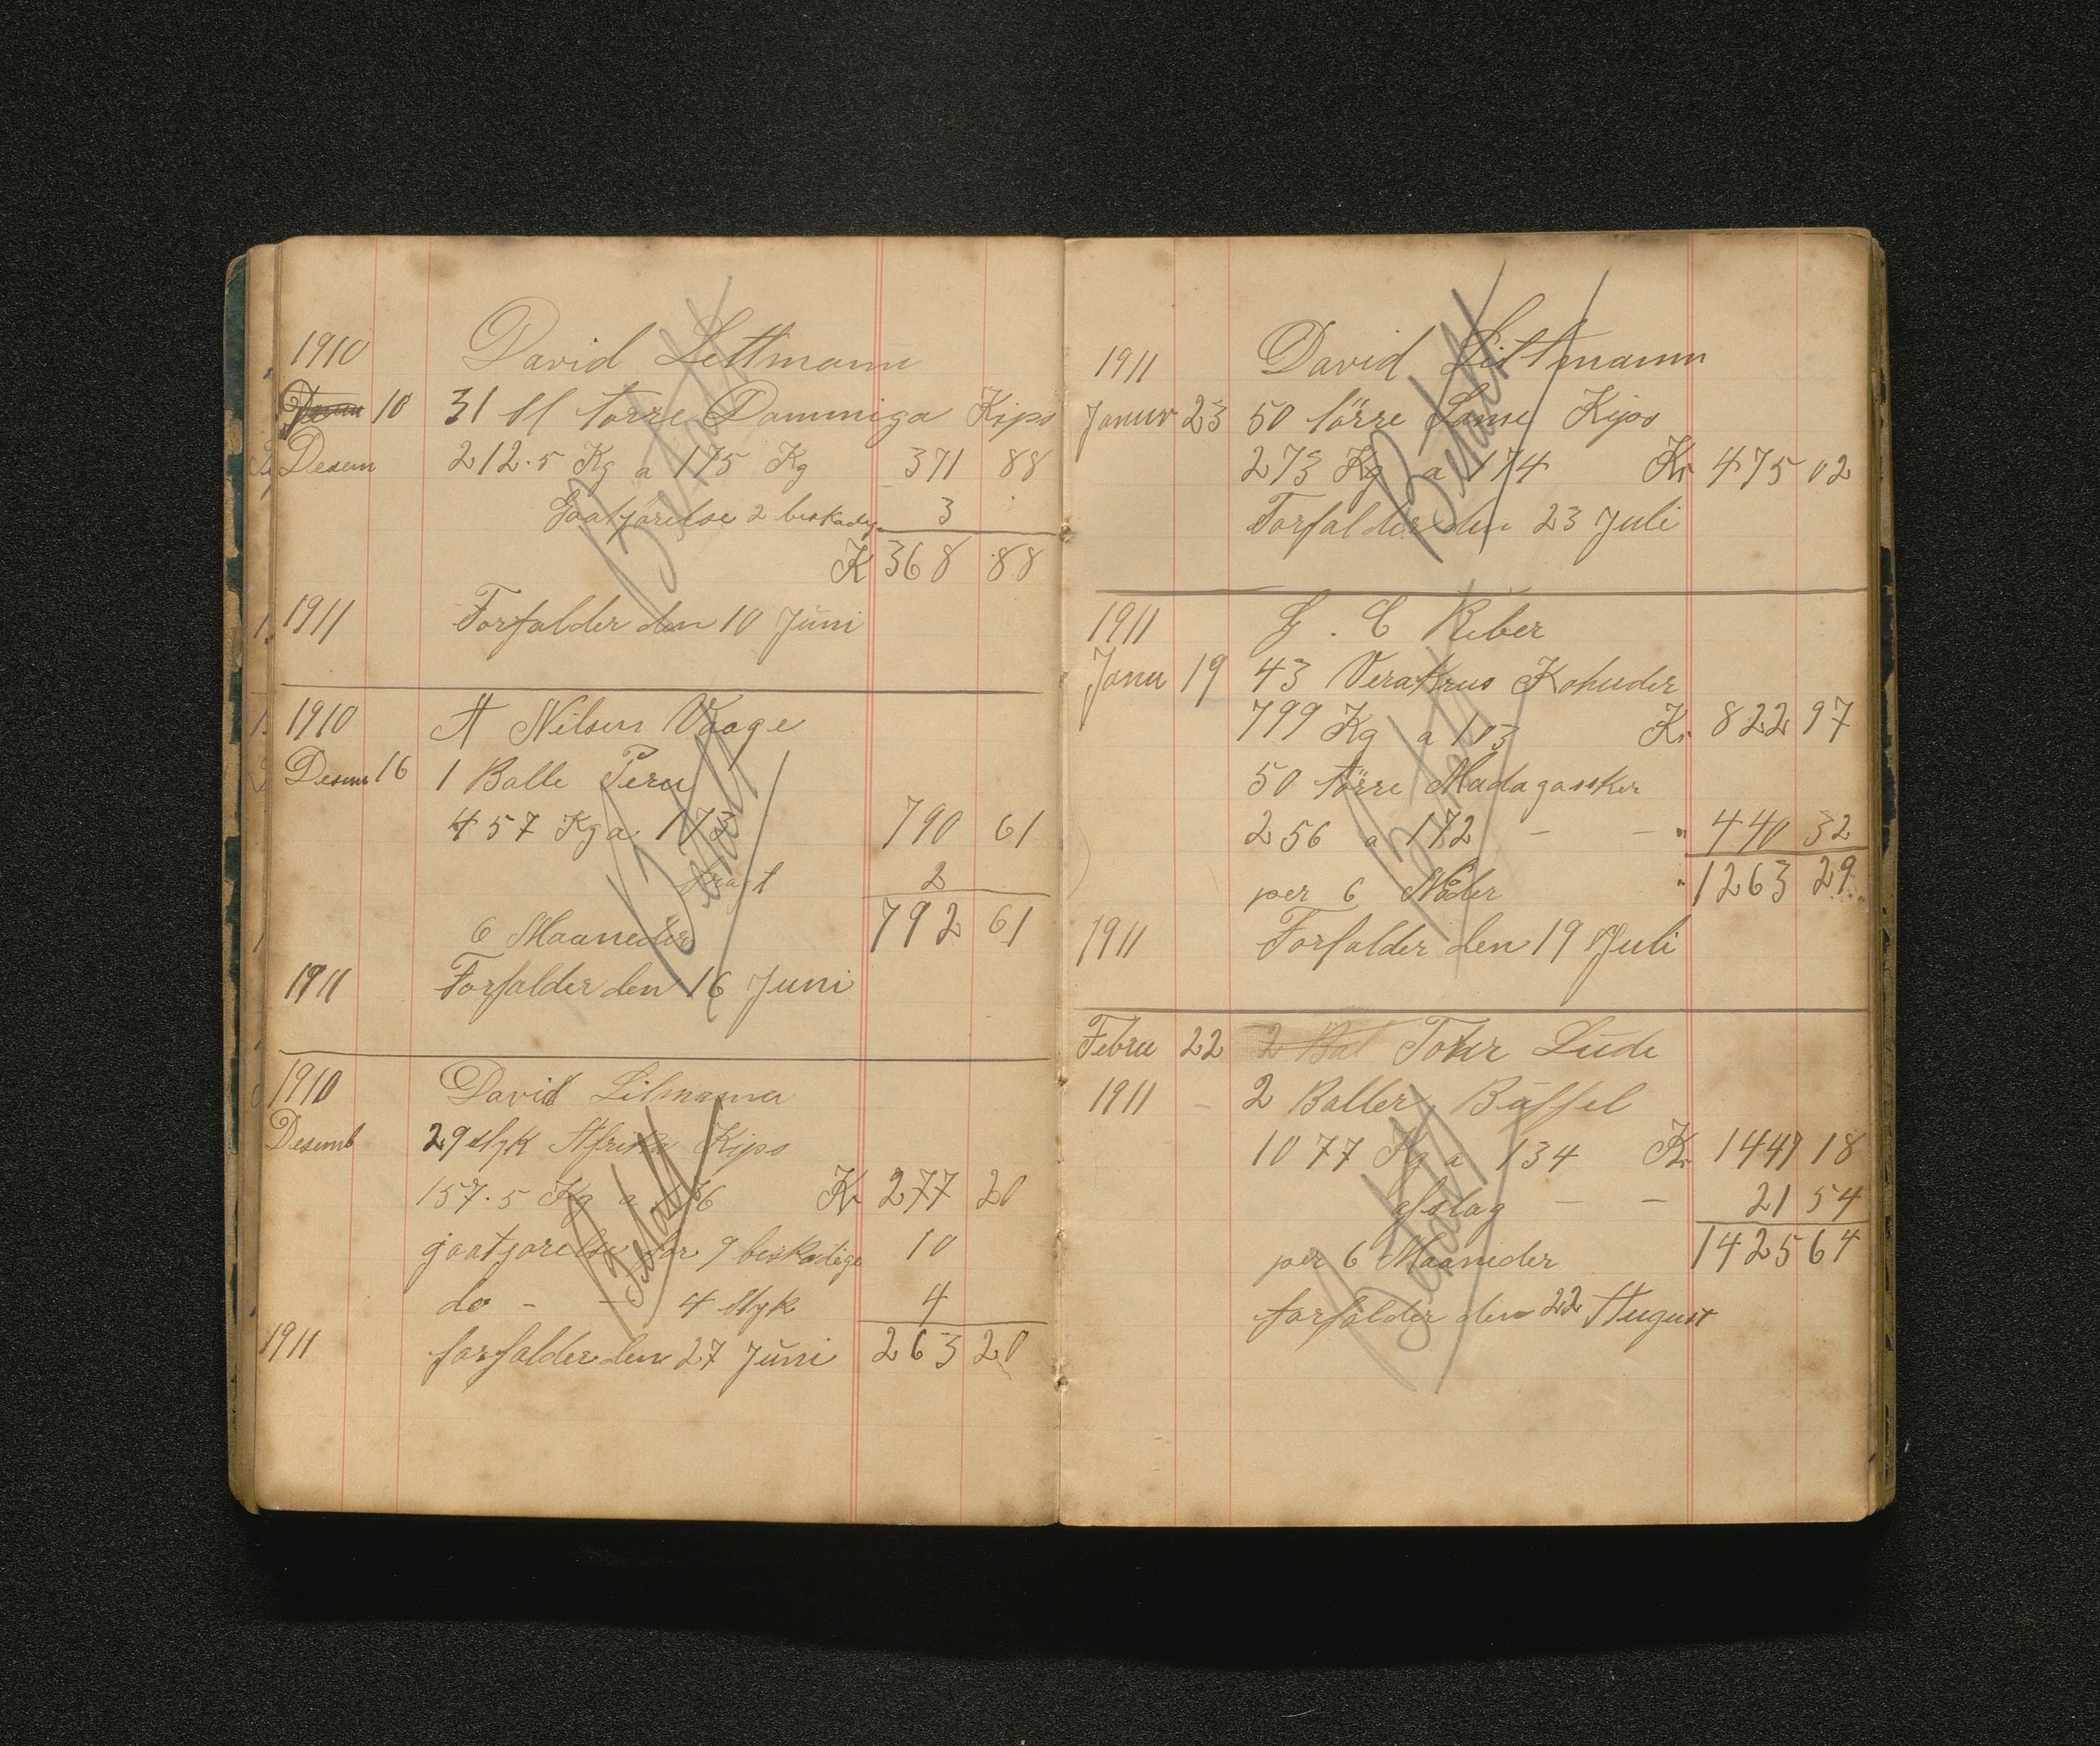 1910 David Lettmann
10 31 st tørre Dominiga Kips
Desem 212.5 Kg a 175 Kg 371 88
Goatjørelse 2 beskadig 3
K 368 88
1911 Forfalder den 10 Juni
Betalt
1910 A Nilsen Vaage
Desem 16 1 Balle Peru
457 Kg a 173 790 61
fragt 2
6 Maaneder 792 61
1911 Forfalder den 16 Juni
Betalt
1910 David Litmann
Desemb 29 styk Afrika Kips
157.5 Kg a 176 Kr 277 20
goatjørelse for 9 beskadige 10
do - - 4 styk 4
1911 forfalder den 27 Juni 263 20
Betalt
1911 David Littmann
Januv 23 50 törre Kips
273 Kg a 174 Kr 475 02
Forfalder den 23 Juli
Betalt
1911 G. C Riber
Janu 19 43 Verakrus Kohuder
799 Kg a 103 Kr 822 97
50 törre Madagassker
256 a 172 — — " 440 32
per 6 Måder " 1263 29
1911 Forfalder den 19 Juli
Betalt
Febru 22 2 Bal Tohr Lude
1911 - 2 Baller Büffel
1077 Kg a 134 Kr 1447 18
afslag — — 21 54
per 6 Maaneder 1425 64
forfalder den 22 August
Betalt